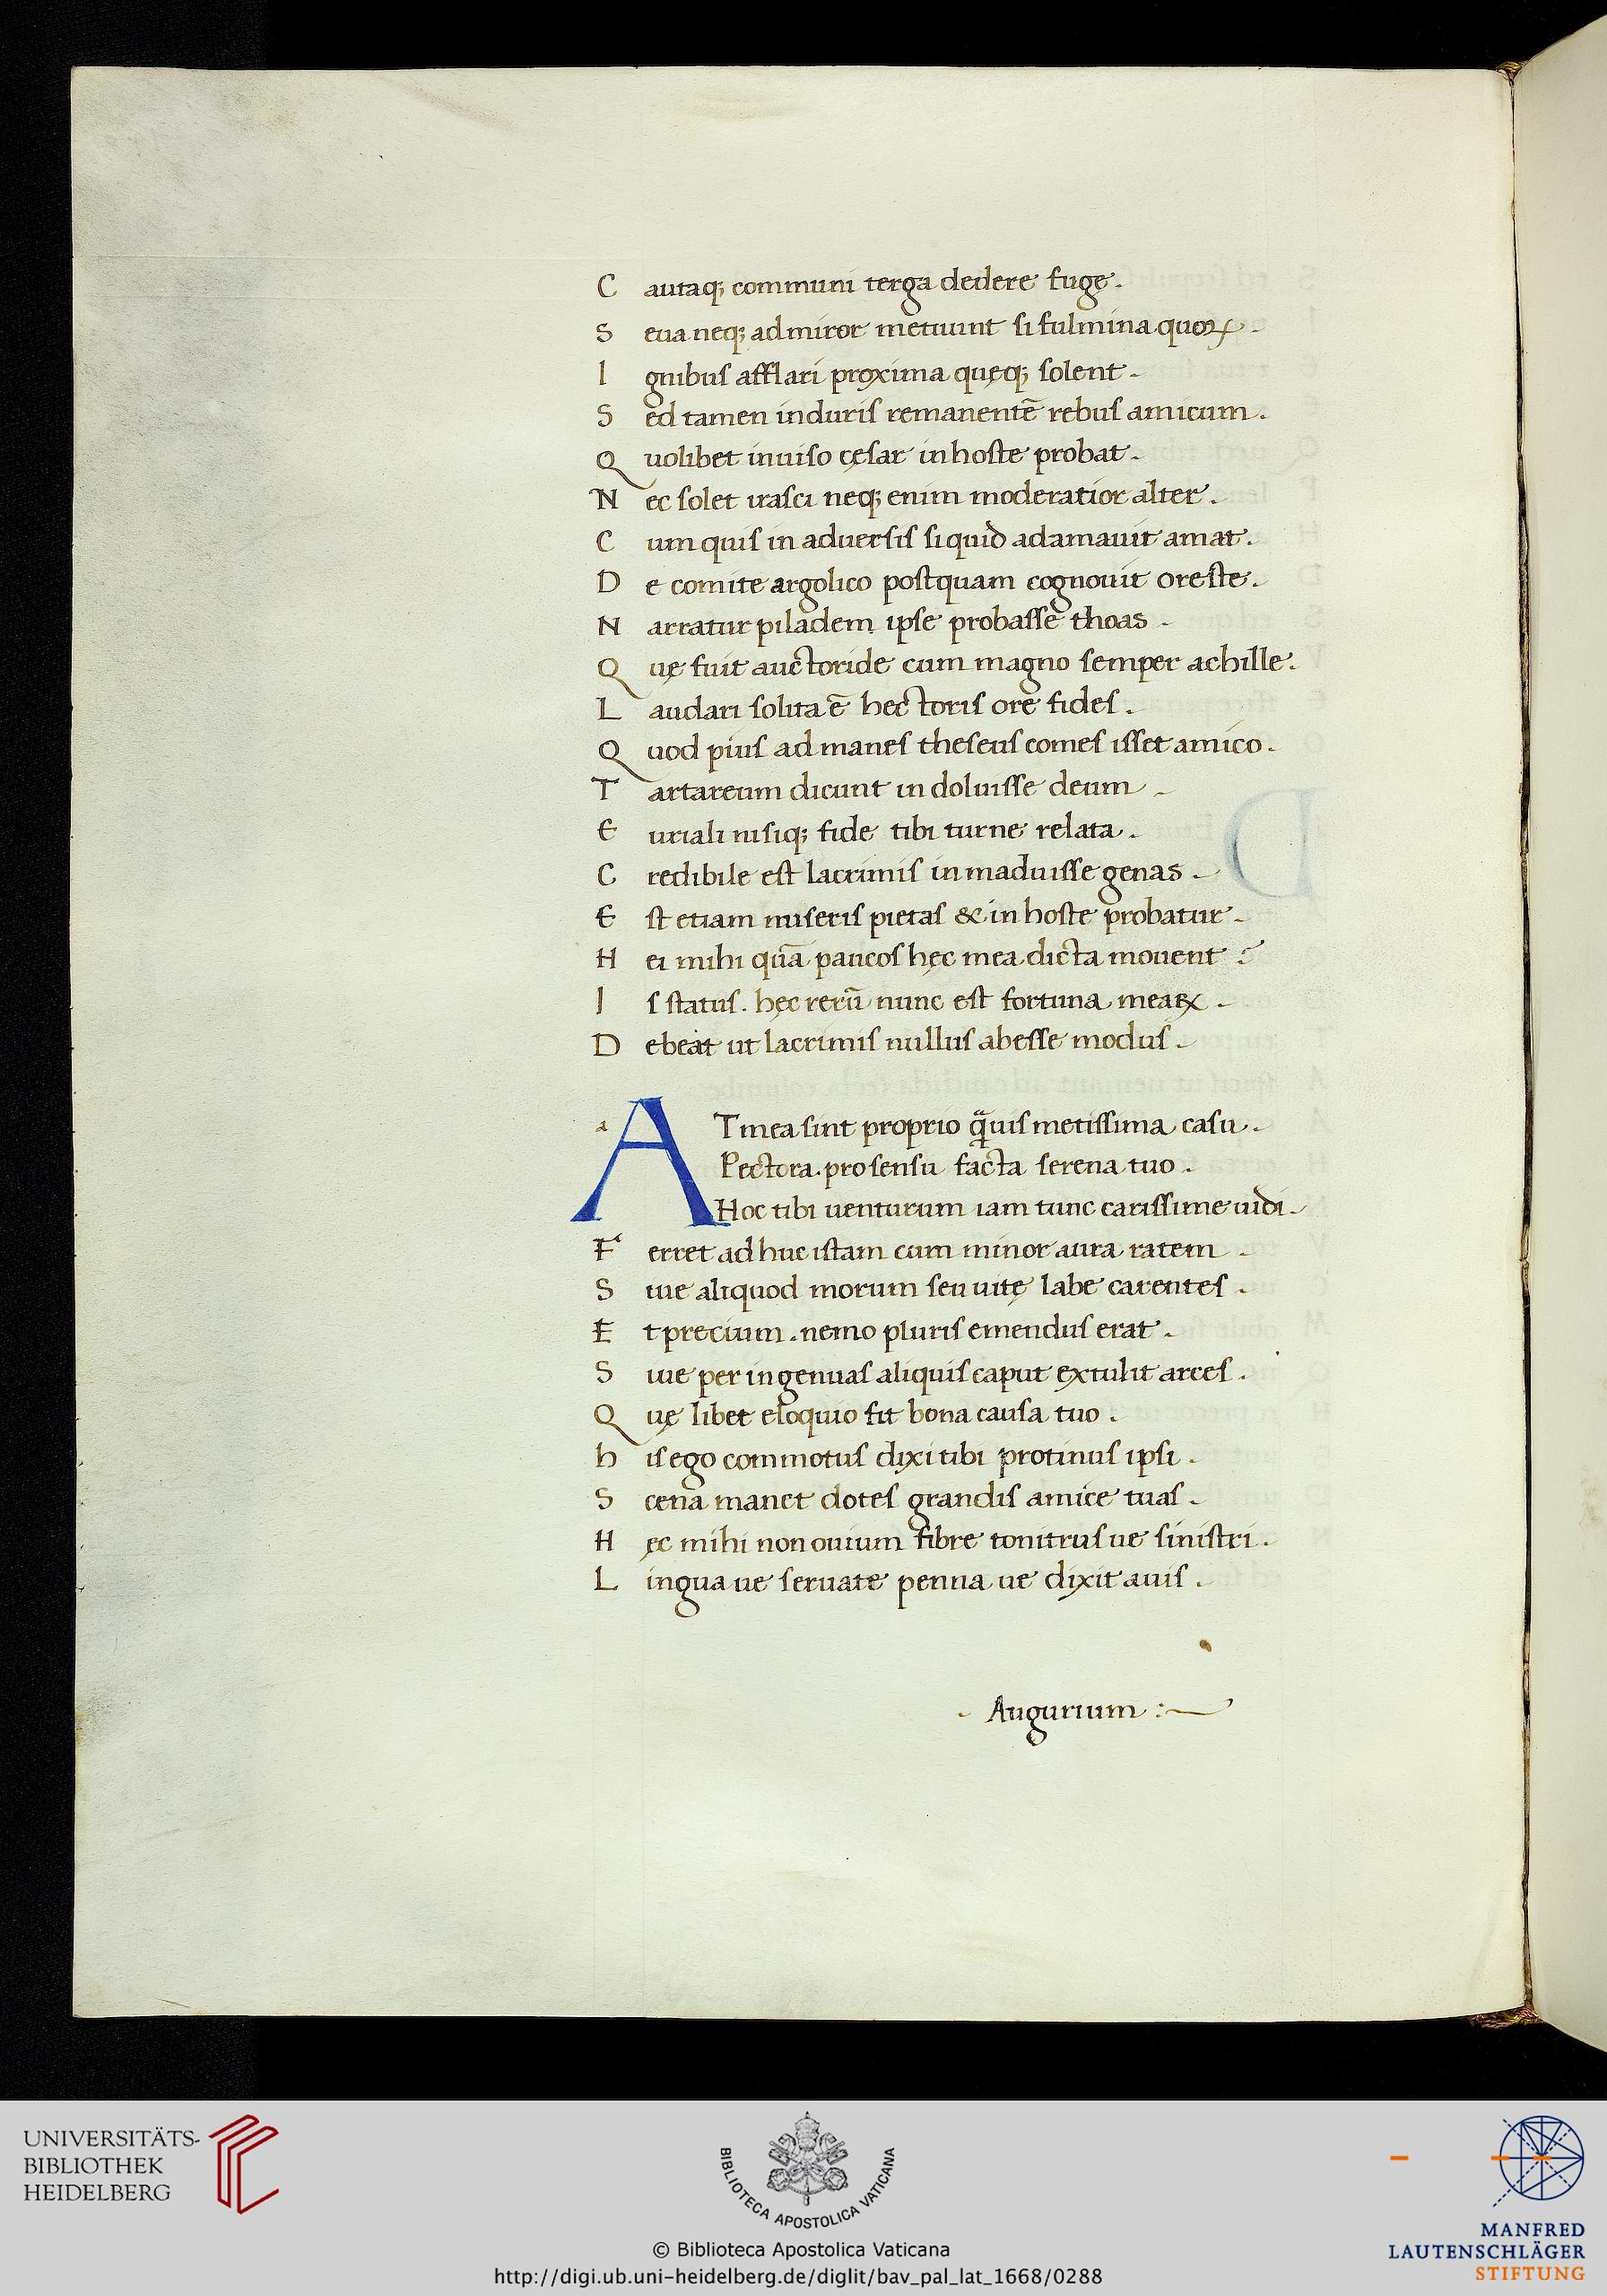 C autaq; communi terga dedere fugę.
S eua neq; admiror metuunt si fulmina quoꝝ.
I gnibus afflari proxima quęq; solent.
S ed tamen induris remanentē rebus amicum.
Q uolibet inuiso cęsar inhoste probat.
N ec solet irasci neq; enim moderatior alter.
C um quis in aduersis siquid adamauit amat.
D e comite argolico postquam cognouit oreste.
N arratur piladem ipse probasse thoas.
Q uę fuit auctoride cum magno semper achille.
L audari solita ē hectoris ore fides.
Q uod pius ad manes theseus comes isset amico.
T artareum dicunt in doluisse deum.
E uriali nisiq; fide tibi turne relata.
C redibile est lacrimis inmaduisse genas.
E st etiam miseris pietas & in hoste probatur.
H ei mihi quā paucos hęc mea dicta mouent?
I s status. hęc rerū nunc est fortuna mearꝝ.
D ebeat ut lacrimis nullus abesse modus.
a A T mea sint proprio q̄uis metissima casu.
Pectora. pro sensu facta serena tuo.
Hoc tibi uenturum iam tunc carissime uidi.
F erret ad huc istam cum minor aura ratem.
S iue aliquod morum seu uitę labe carentes.
E t precium. nemo pluris emendus erat.
S iue per ingenuas aliquis caput extulit arces.
Q uę libet eloquio fit bona causa tuo.
h is ego commotus dixi tibi protinus ipsi.
S cena manet dotes grandis amice tuas.
H ęc mihi non ouium fibre tonitrus ue sinistri.
L ingua ue seruate penna ue dixit auis.
Augurium :
UNIVERSITÄTS-
BIBLIOTHEK
HEIDELBERG
BIBLIOTECA APOSTOLICA VATICANA
© Biblioteca Apostolica Vaticana
http://digi.ub.uni-heidelberg.de/diglit/bav_pal_lat_1668/0288
MANFRED
LAUTENSCHLÄGER
STIFTUNG